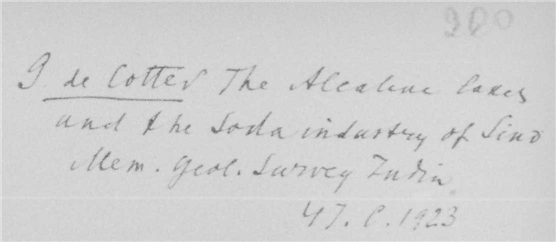 G de Cotter The Alcaline Lakes
and the Soda industry of Sind
Mem. Geol. Survey India
47. C. 1923